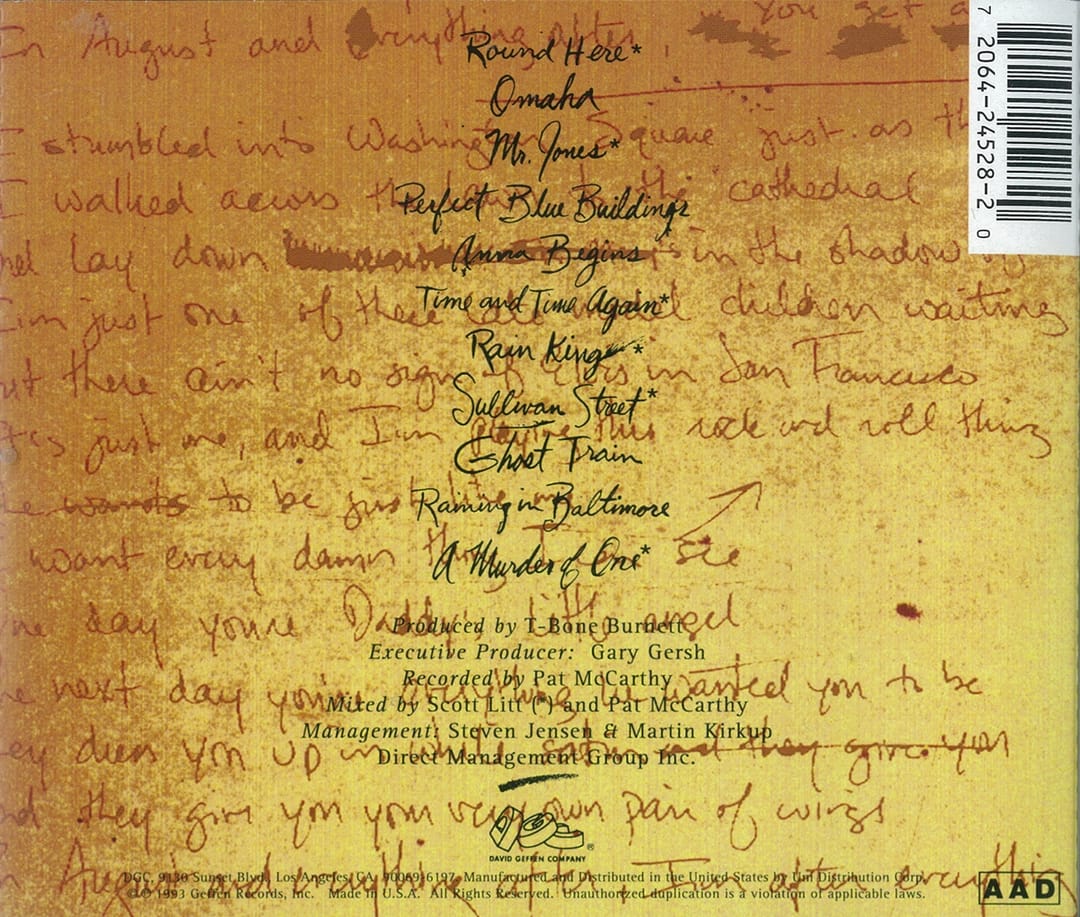 In August and everything after, You get a
Round Here*
Omaha
I stumbled into Washington Square just as th
Mr. Jones*
I walked across the cathedral
Perfect Blue Buildings
lay down in the shadow
Anna Begins
I'm just one of these children waiting
Time and Time Again*
Rain King*
there ain't no sign of in San Francisco
Sullivan Street*
just me, and I'm this rock and roll thing
Ghost Train
wants to be just
Raining in Baltimore
want every damn see
A Murder of One*
day you're Daddy's little angel
Produced by T-Bone Burnett
Executive Producer: Gary Gersh
Recorded by Pat McCarthy
next day you're everything he wanted you to be
Mixed by Scott Litt (*) and Pat McCarthy
Management: Steven Jensen & Martin Kirkup
dress you up in white satin and they give you
Direct Management Group Inc.
they give you your very own pair of wings
DAVID GEFFEN COMPANY ®
August and everything I'm after everything
DGC, 9130 Sunset Blvd., Los Angeles, CA 90069-6197. Manufactured and Distributed in the United States by Uni Distribution Corp.
℗© 1993 Geffen Records, Inc. Made in U.S.A. All Rights Reserved. Unauthorized duplication is a violation of applicable laws.
AAD
7 2064-24528-2 0